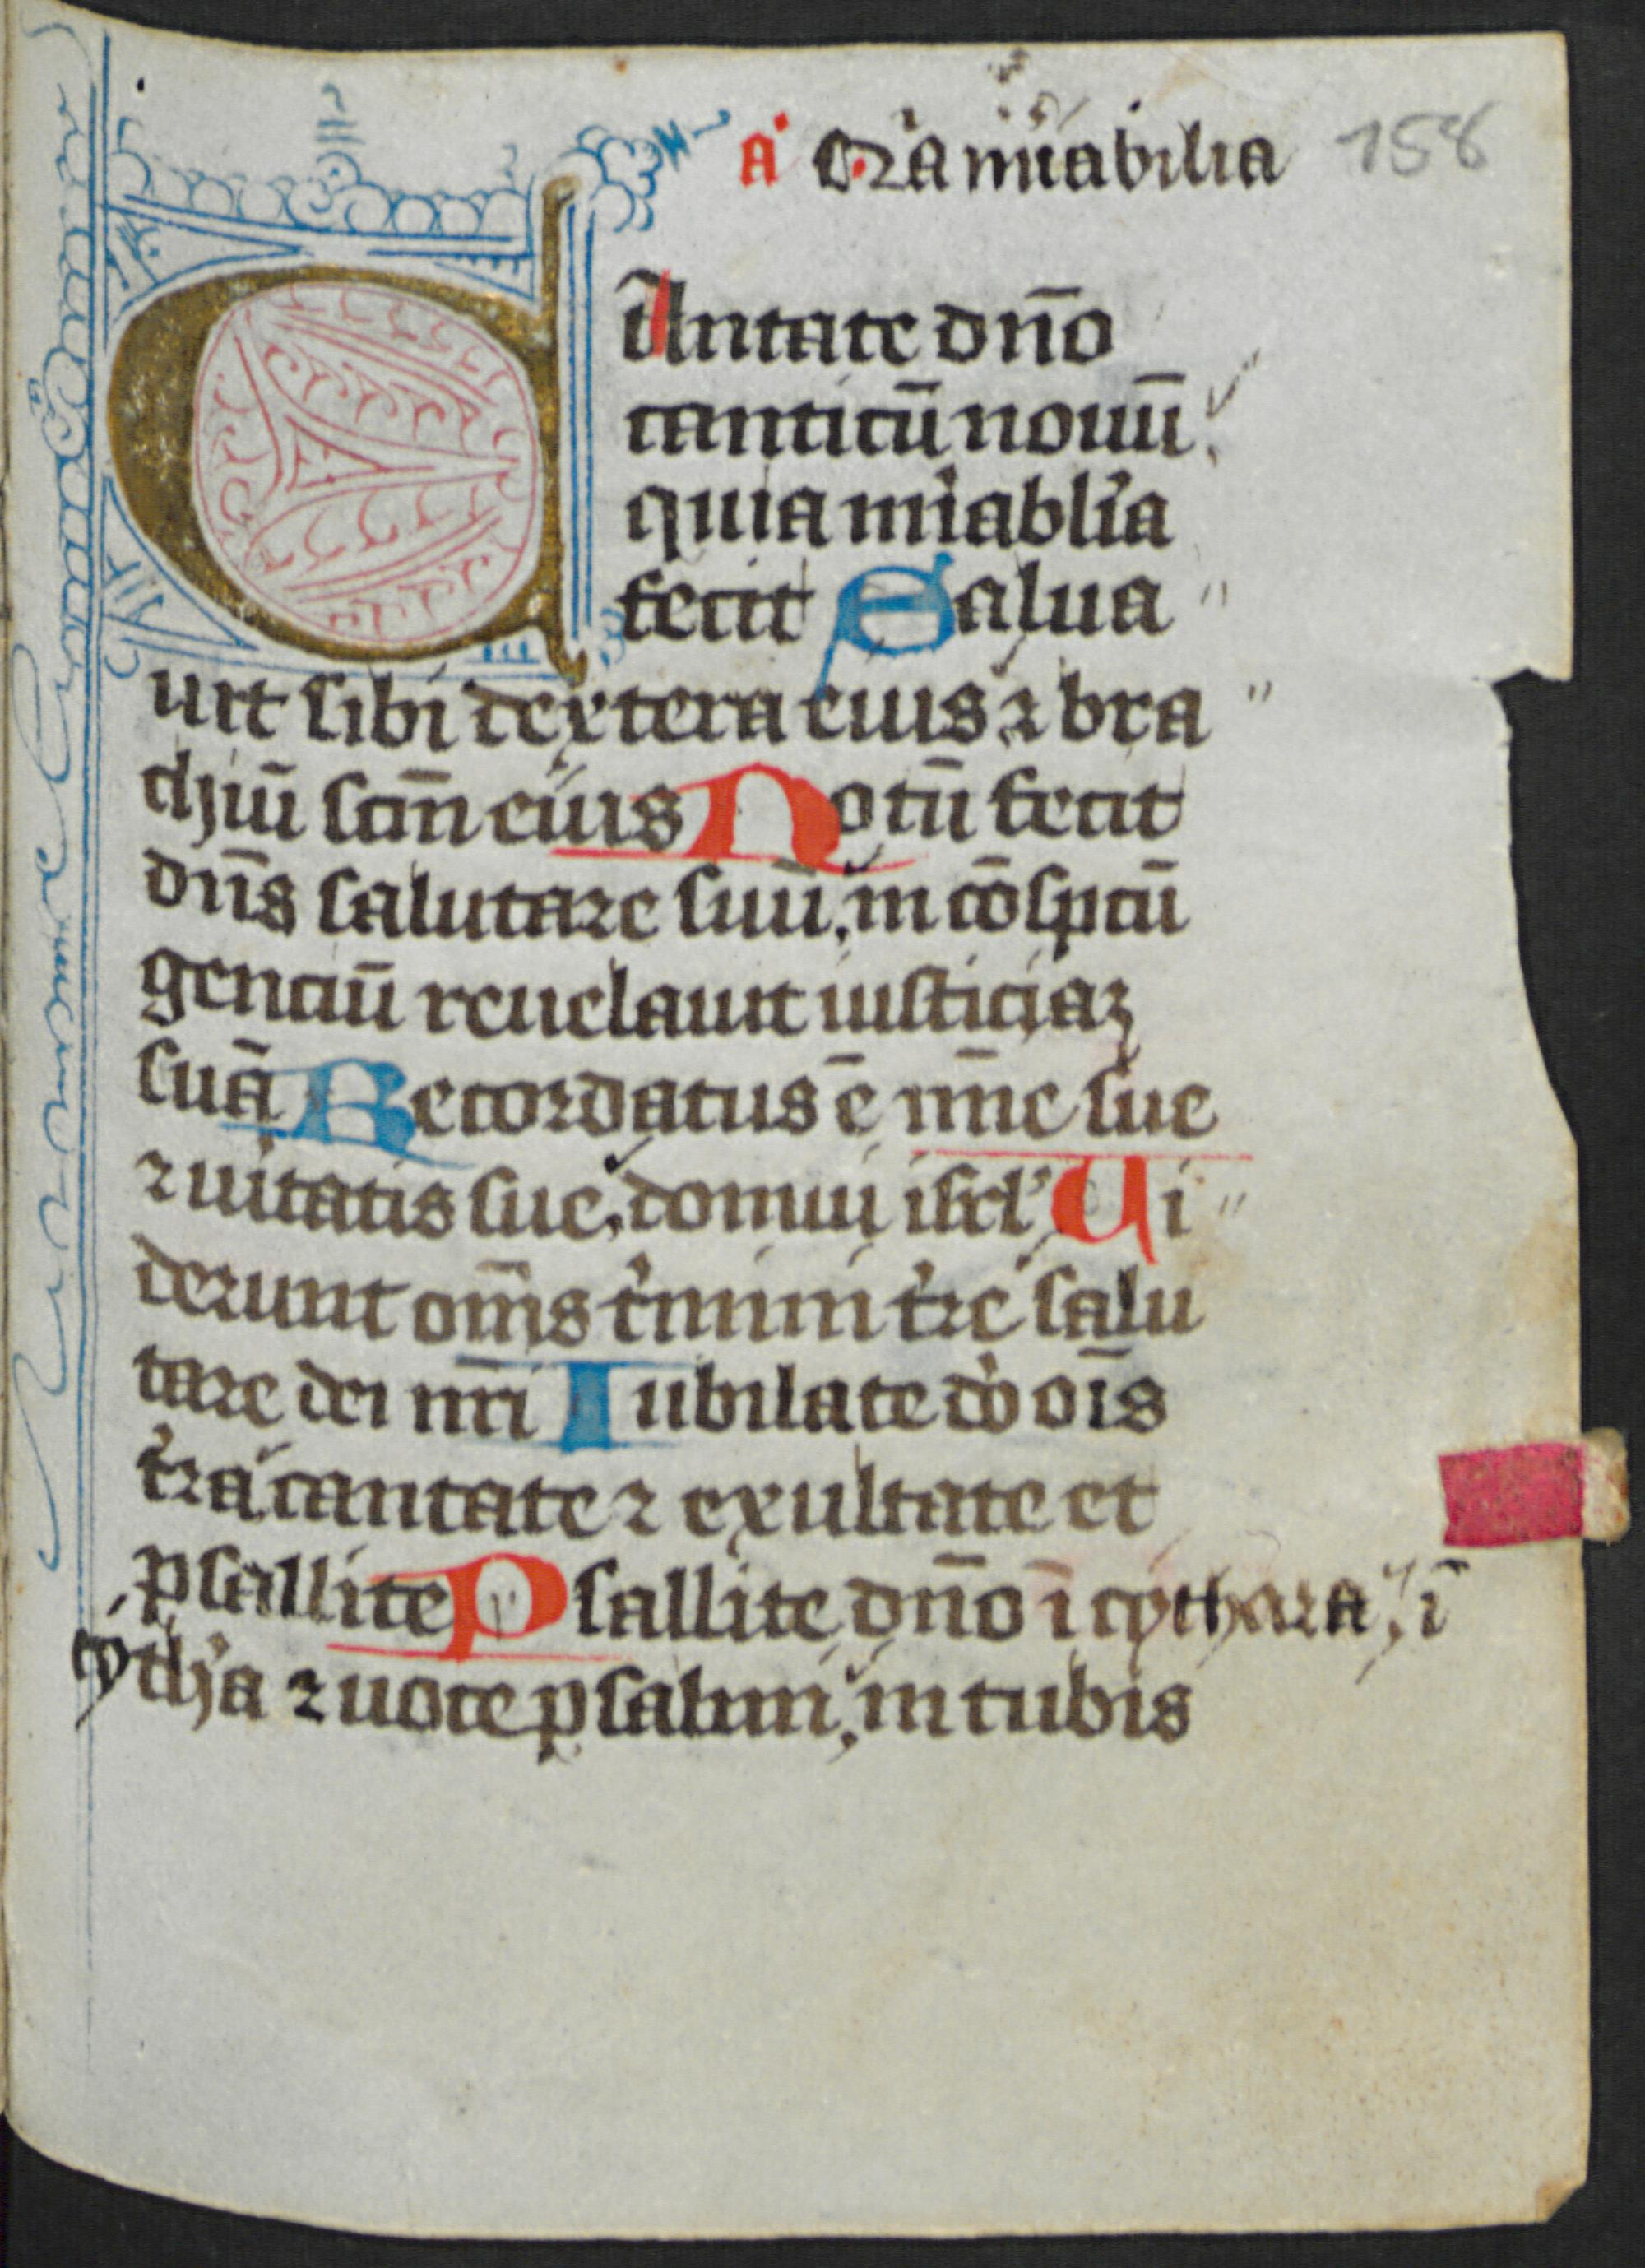 a Qr̄a mīrabilia 158
CAntate dn̄o
canticū nouū
quia mi̾ablia̾
fecit Salua
uit sibi dextera eius ⁊ bra
chiū scm̄ eius Notū fecit
dn̄s salutare suū, in cōsp̄ctū
genciū reuelauit iusticiaꝫ
suā Recordatus ē mīe sue
⁊ uitatis sue, domui isrl̾ Ui
derunt om̄s t̾mini t̾re salu
tare dei nr̄i Iubilate do̾ oīs
t̾ra cantate ⁊ exultate et
psallite Psallite dn̄o ī cythara, ī
cyth̾a ⁊ uoce psalmi, in tubis